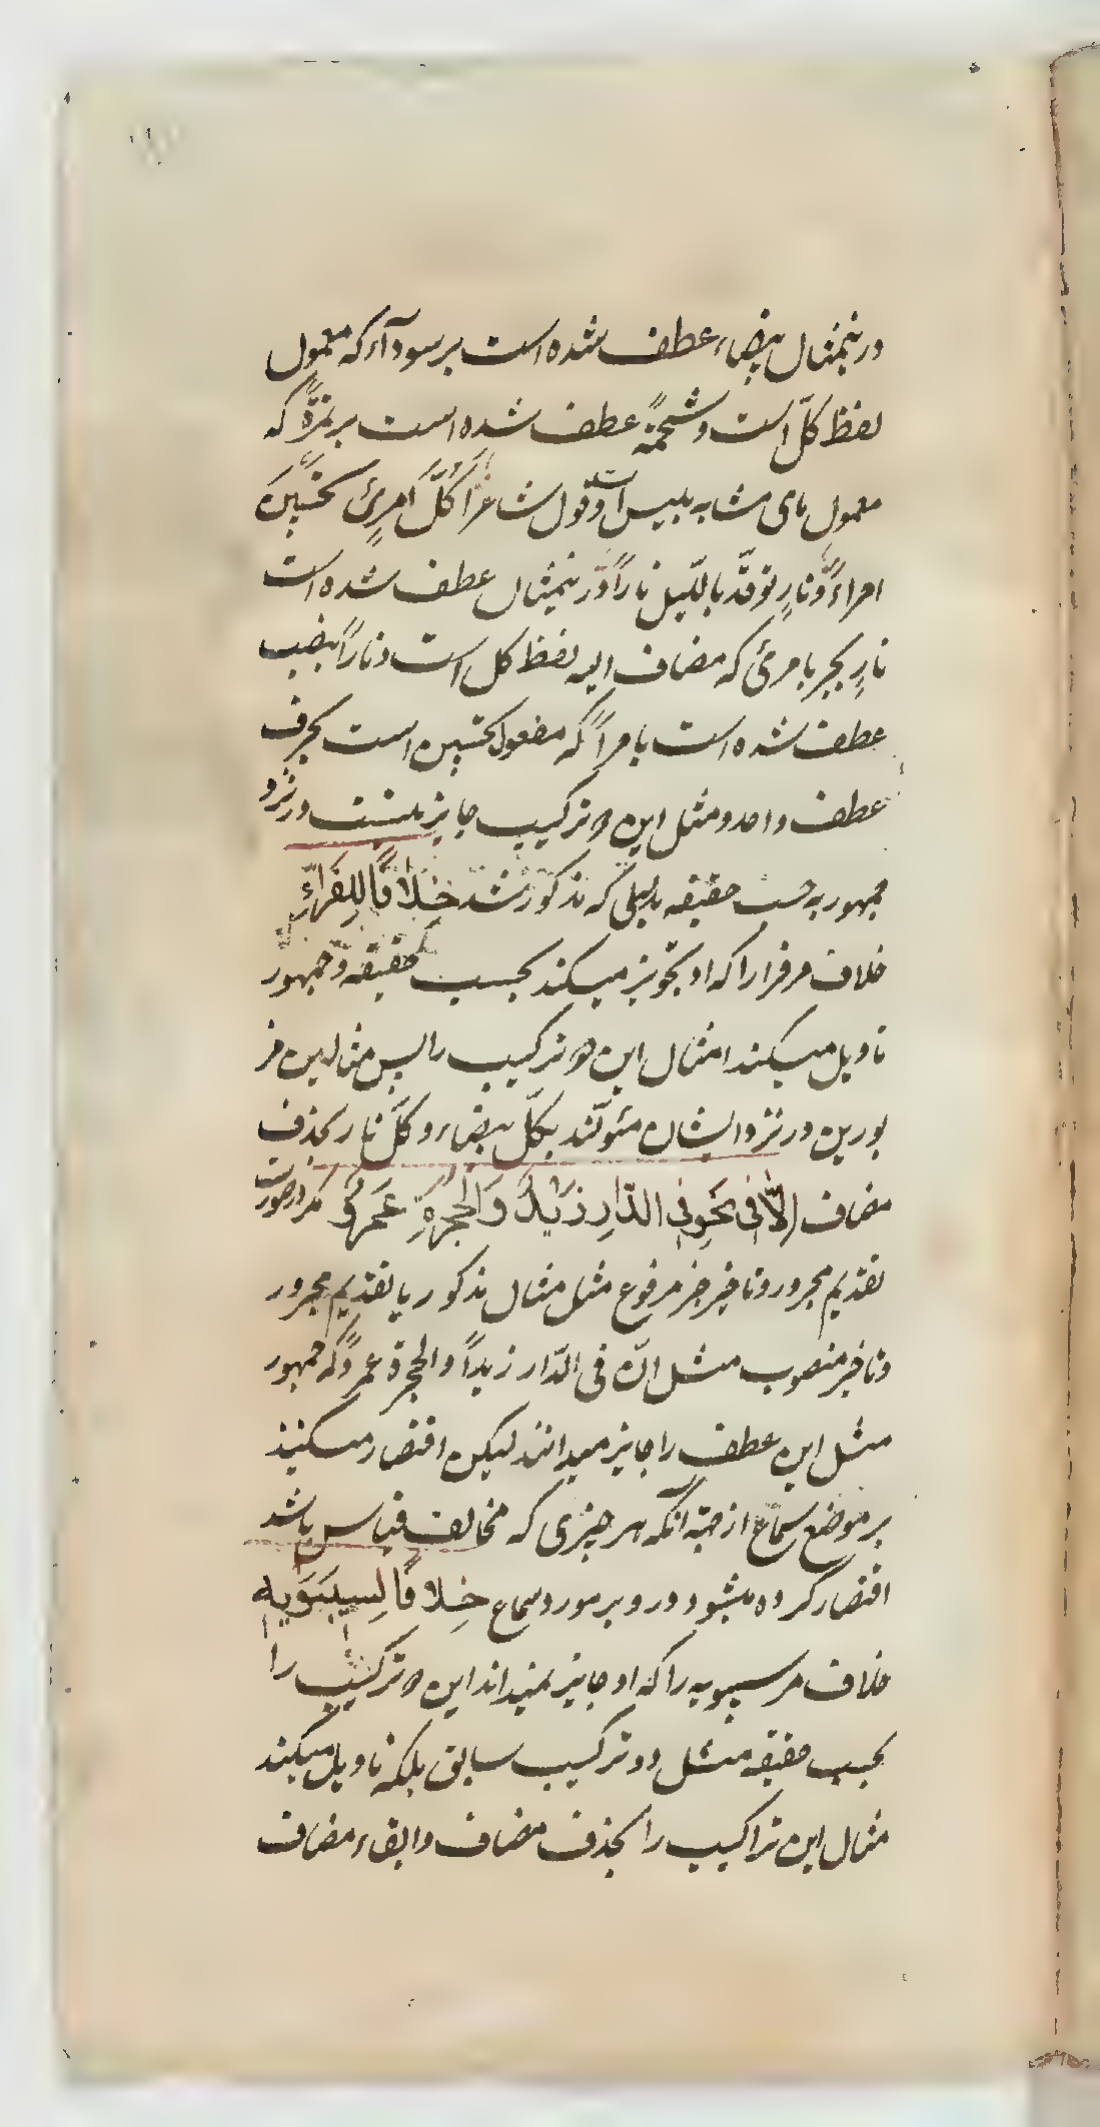 درینمثال بیضاء عطف شده است بر سوداء که معمول
لفظ کلّ است و شحمةً عطف شده است بر تمرةً که
معمول مای مشابه بلیس است و قول شاعر أَکُلَّ اَمرِئٍ تَحْسَبِینَ
امراءً و نارٍ توقّد باللّیل ناراً و درینمثال عطف شده است
نارٍ بجر بامرئ که مضاف الیه لفظ کل است و ناراً بنصب
عطف شده است بامراً که مفعول تحسبین است بحرف
عطف واحد و مثل این دو ترکیب جایز نیست در نزد
جمهور به حسب حقیقه بدلیلی که مذکور شد خِلافاً لِلفَرّاءِ
خلاف مر فرا را که او تجویز میکند بحسب حقیقه و جمهور
تاویل میکند امثال این دو ترکیب را پس مثالین مز
بورین در نزد ایشان مئوّلند بکلّ بیضاء و کلّ نار بحذف
مضاف اِلاّ فی نَحوِ فی الدّارِ زَیْدٌ وَ الحُجرَةِ عَمرٌو مگر در صورت
تقدیم مجرور و تاخیر جز مرفوع مثل مثال مذکور یا تقدیم مجرور
و تاخیر منصوب مثل انّ فی الدّار زیداً و الحجرة عمرواً که جمهور
مثل این عطف را جایز میدانند لیکن اقتصار میکنند
بر موضع سماع از جهة آنکه هر چیزی که مخالف قیاس باشد
اقتصار کرده میشود در و بر مورد سماع خِلافاً لِسِیبَوَیهِ
خلاف مر سیبویه را که او جایز نمیداند این دو ترکیب را
بحسب حقیقه مثل دو ترکیب سابق بلکه تاویل میکند
مثال این تراکیب را بحذف مضاف و ابقاء مضاف